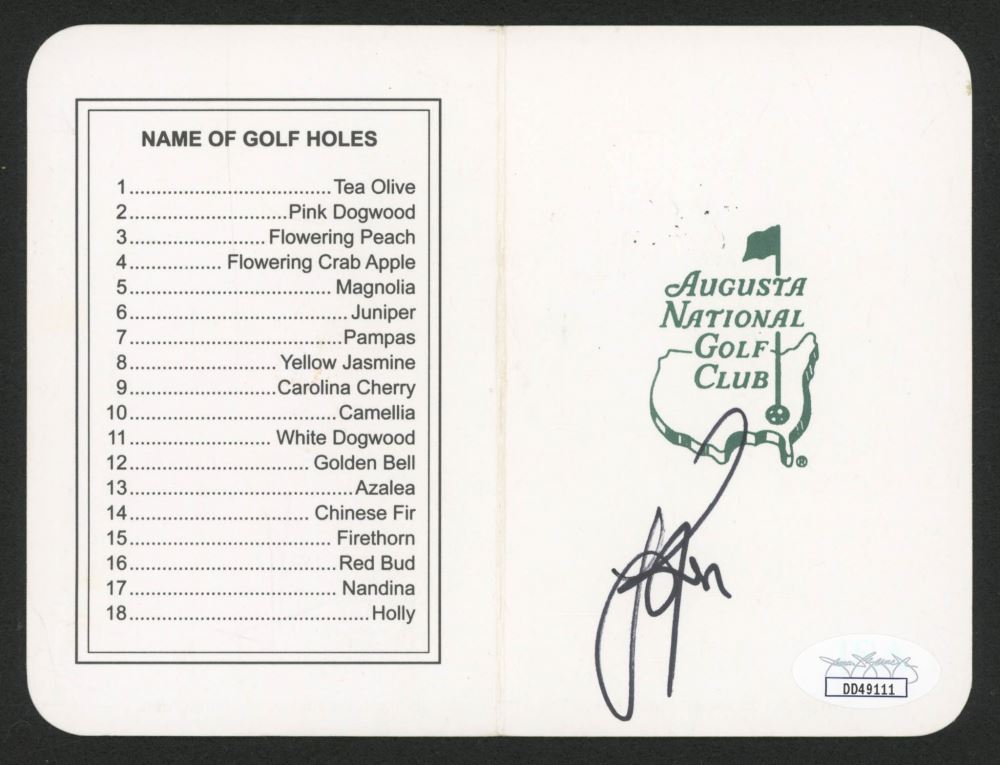 NAME OF GOLF HOLES
1.....................................Tea Olive
2.............................Pink Dogwood
3.........................Flowering Peach
4................. Flowering Crab Apple
5..................................... Magnolia
6........................................Juniper
7.......................................Pampas
8........................... Yellow Jasmine
9...........................Carolina Cherry
10......................................Camellia
11.......................... White Dogwood
12................................. Golden Bell
13.........................................Azalea
14................................. Chinese Fir
15..................................... Firethorn
16......................................Red Bud
17...................................... Nandina
18............................................Holly
AUGUSTA
NATIONAL
GOLF
CLUB
®
DD49111